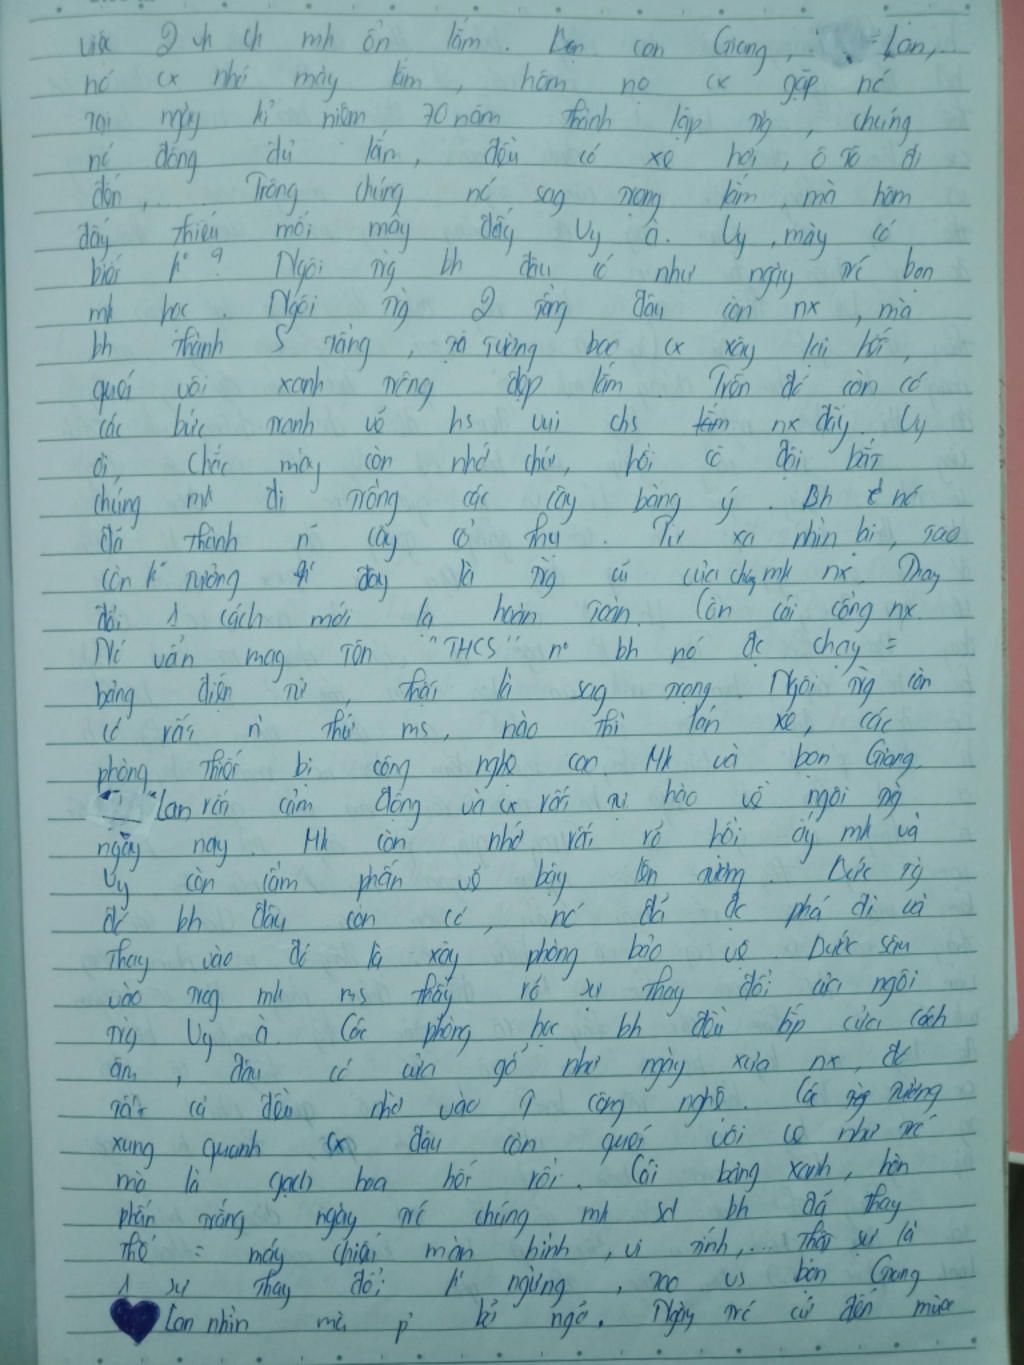 việc 2 vh ch mh ổn lắm. Bọn con Giang, Lan,...
nó cx nhớ mày lắm, hôm nọ cx gặp nó
tại ngày kỉ niệm 70 năm thành lập trg, chúng
nó đông đủ lắm, đều có xe hơi, ô tô đi
đến,..... Trông chúng nó sag trọng lắm, mà hôm
đấy thiếu mỗi mày đấy Vy ạ. Vy, mày có
biết k ? Ngôi trg bh đâu có như ngày trc bọn
mk học. Ngôi trg 2 tầng đâu còn nx, mà
bh thành 5 tầng, tả tường bọc cx xây lại hết,
quét vôi xanh trông đẹp lắm. Trên đó còn có
các bức tranh vẽ hs vui chs nx đấy. Vy
ơi, chắc mày còn nhớ chứ, hồi cô đội bắt
chúng mk đi trồng các cây bàng ý. Bh nó
đã thành n cây cổ thụ. Từ xa nhìn lại, sao
còn k tưởng đây là trg cũ của chúg mk nx. Thay
đổi 1 cách mới lạ hoàn toàn. Còn cái cổng nx.
Nó vẫn mag tên "THCS" n bh nó đc chạy =
bảng điện tử, thật là sag trọng. Ngôi trg còn
có rất n thứ ms, nào thì lán xe, các
phòng thiết bị công nghệ cao. Mk và bọn Giang,
Lan rất cảm động và cx rất tự hào về ngôi trg
ngày nay. Mk còn nhớ rất rõ hồi ấy mk và
Vy còn cầm phấn vẽ bậy lên tường. Bức tg
đó bh đâu còn có, nó đã đc phá đi và
thay vào đó là xây phòng bảo vệ. Bước sâu
vào trog mk ms thấy rõ sự thay đổi của ngôi
trg Vy ạ. Các phòng học bh đều lắp cửa cách
âm, đâu có cửa gỗ như ngày xưa nx, đó
tất cả đều nhờ vào công nghệ. Cả tường
xung quanh cx đâu còn quét vôi ve như trc
mà là gạch hoa hết rồi. Cái bảng xanh, hòn
phấn trắng ngày trc chúng mk sd bh đã thay
thế = máy chiếu màn hình, vi tính,... Thật sự là
1 sự thay đổi k ngừng, tao vs bọn Giang
Lan nhìn mà p bỡ ngỡ. Ngày trc cứ đến mùa